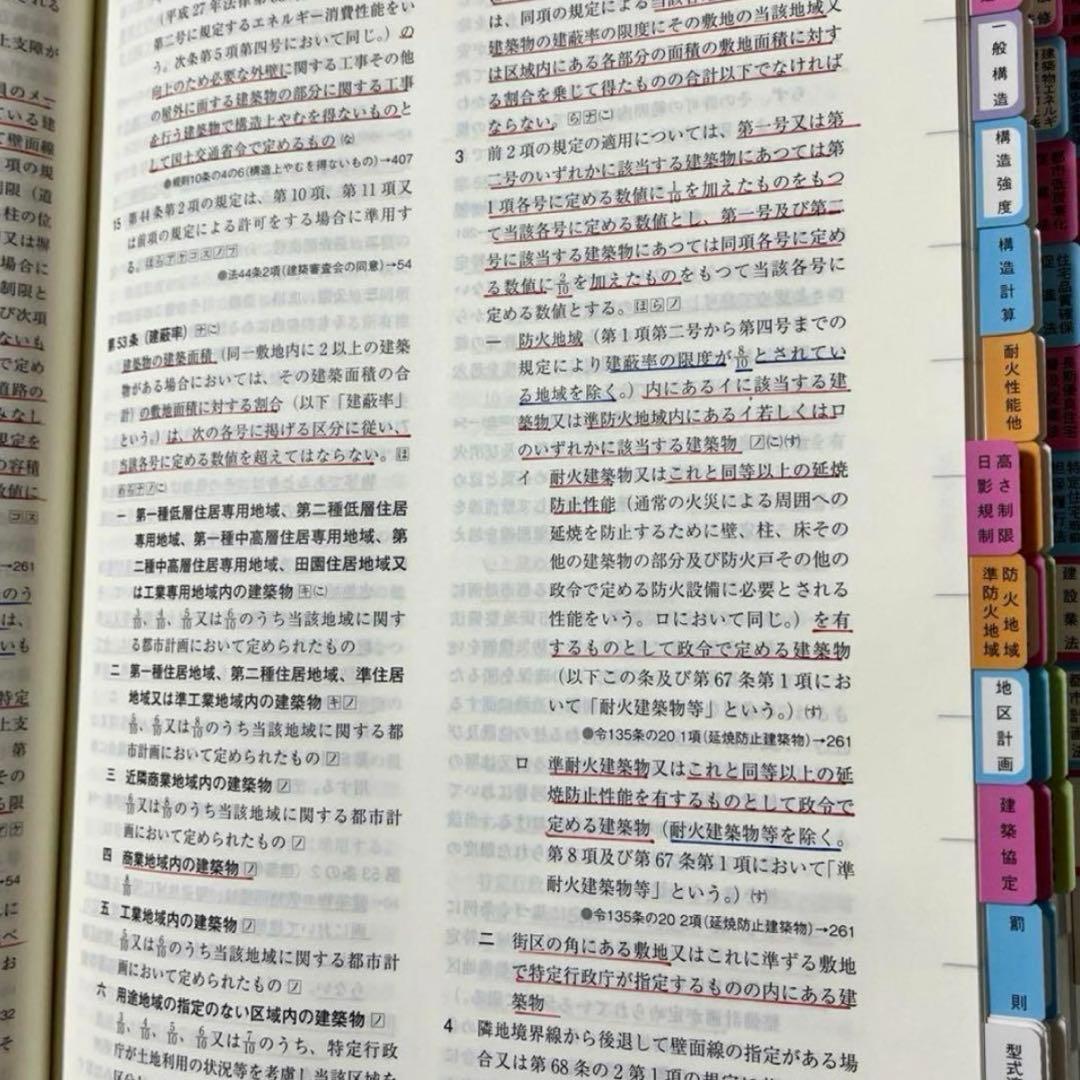 (平成27年法律第
第二号に規定するエネルギー消費性能をい
う。次条第5項第四号において同じ。)の
向上のため必要な外壁に関する工事その他
の屋外に面する建築物の部分に関する工事
を行う建築物で構造上やむを得ないものと
して国土交通省令で定めるもの
●規則10条の4の6(構造上やむを得ないもの)→407
15 第44条第2項の規定は、第10項、第11項又
は前項の規定による許可をする場合に準用す
る。
●法44条2項(建築審査会の同意)→54
第53条(建蔽率)
建築物の建築面積(同一敷地内に2以上の建築
物がある場合においては、その建築面積の合
計)の敷地面積に対する割合(以下「建蔽率」
という。)は、次の各号に掲げる区分に従い、
当該各号に定める数値を超えてはならない。
一 第一種低層住居専用地域、第二種低層住居
専用地域、第一種中高層住居専用地域、第
二種中高層住居専用地域、田園住居地域又
は工業専用地域内の建築物
3/10、4/10、5/10又は6/10のうち当該地域に関す
る都市計画において定められたもの
二 第一種住居地域、第二種住居地域、準住居
地域又は準工業地域内の建築物
5/10、6/10又は8/10のうち当該地域に関する都
市計画において定められたもの
三 近隣商業地域内の建築物
6/10又は8/10のうち当該地域に関する都市計
画において定められたもの
四 商業地域内の建築物
8/10
五 工業地域内の建築物
5/10又は6/10のうち当該地域に関する都市計
画において定められたもの
六 用途地域の指定のない区域内の建築物
3/10、4/10、5/10、6/10又は7/10のうち、特定行政
庁が土地利用の状況等を考慮し当該区域を
は、同項の規定による当該各地域又
建築物の建蔽率の限度にその敷地の当該地域又
は区域内にある各部分の面積の敷地面積に対す
る割合を乗じて得たものの合計以下でなければ
ならない。
3 前2項の規定の適用については、第一号又は第
二号のいずれかに該当する建築物にあつては第
1項各号に定める数値に1/10を加えたものをもつ
て当該各号に定める数値とし、第一号及び第二
号に該当する建築物にあつては同項各号に定め
る数値に2/10を加えたものをもつて当該各号に
定める数値とする。
一 防火地域(第1項第二号から第四号までの
規定により建蔽率の限度が8/10とされてい
る地域を除く。)内にあるイに該当する建
築物又は準防火地域内にあるイ若しくはロ
のいずれかに該当する建築物
イ 耐火建築物又はこれと同等以上の延焼
防止性能(通常の火災による周囲への
延焼を防止するために壁、柱、床その
他の建築物の部分及び防火戸その他の
政令で定める防火設備に必要とされる
性能をいう。ロにおいて同じ。)を有
するものとして政令で定める建築物
(以下この条及び第67条第1項にお
いて「耐火建築物等」という。)
●令135条の20 1項(延焼防止建築物)→261
ロ 準耐火建築物又はこれと同等以上の延
焼防止性能を有するものとして政令で
定める建築物(耐火建築物等を除く。
第8項及び第67条第1項において「準
耐火建築物等」という。)
●令135条の20 2項(延焼防止建築物)→261
二 街区の角にある敷地又はこれに準ずる敷地
で特定行政庁が指定するものの内にある建
築物
4 隣地境界線から後退して壁面線の指定がある場
合又は第68条の2第1項の規定に
一般構造
構造強度
構造計算
耐火性能他
高さ制限
日影規制
防火地域
準防火地域
地区計画
建築協定
罰則
型式
建設業法
都市計画法